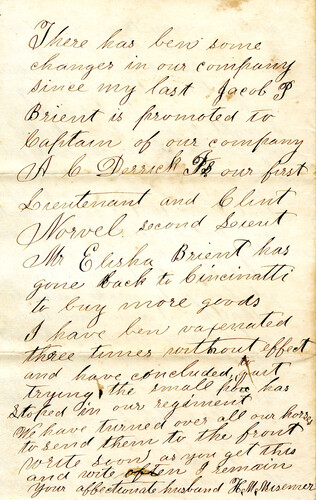 There has ben some
changer in our company
since my last Jacob P
Brient is promoted to
Captain of our company
A C Derrick Is our first
Lieutenant and Clint
Norvel second Lieut
Mr Elisha Brient has
gone back to Cincinatti
to buy more goods
I have ben vaxenated
three times without effect
and have concluded to quit
trying the small pox has
stoped in our regiment
We have turned over all our horses
to send them to the front
write soon as you get this
and write often I remain
Your affectionate husband H. M. Misemer